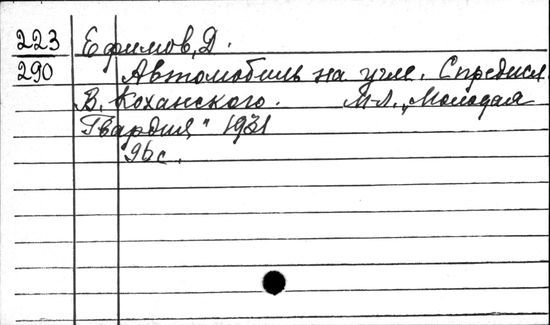 223 Ефимов, Д.
290 Автомобиль на угле. С предисл.
В. Коханского. М-Л. „Молодая
Гвардия" 1931
96 с.